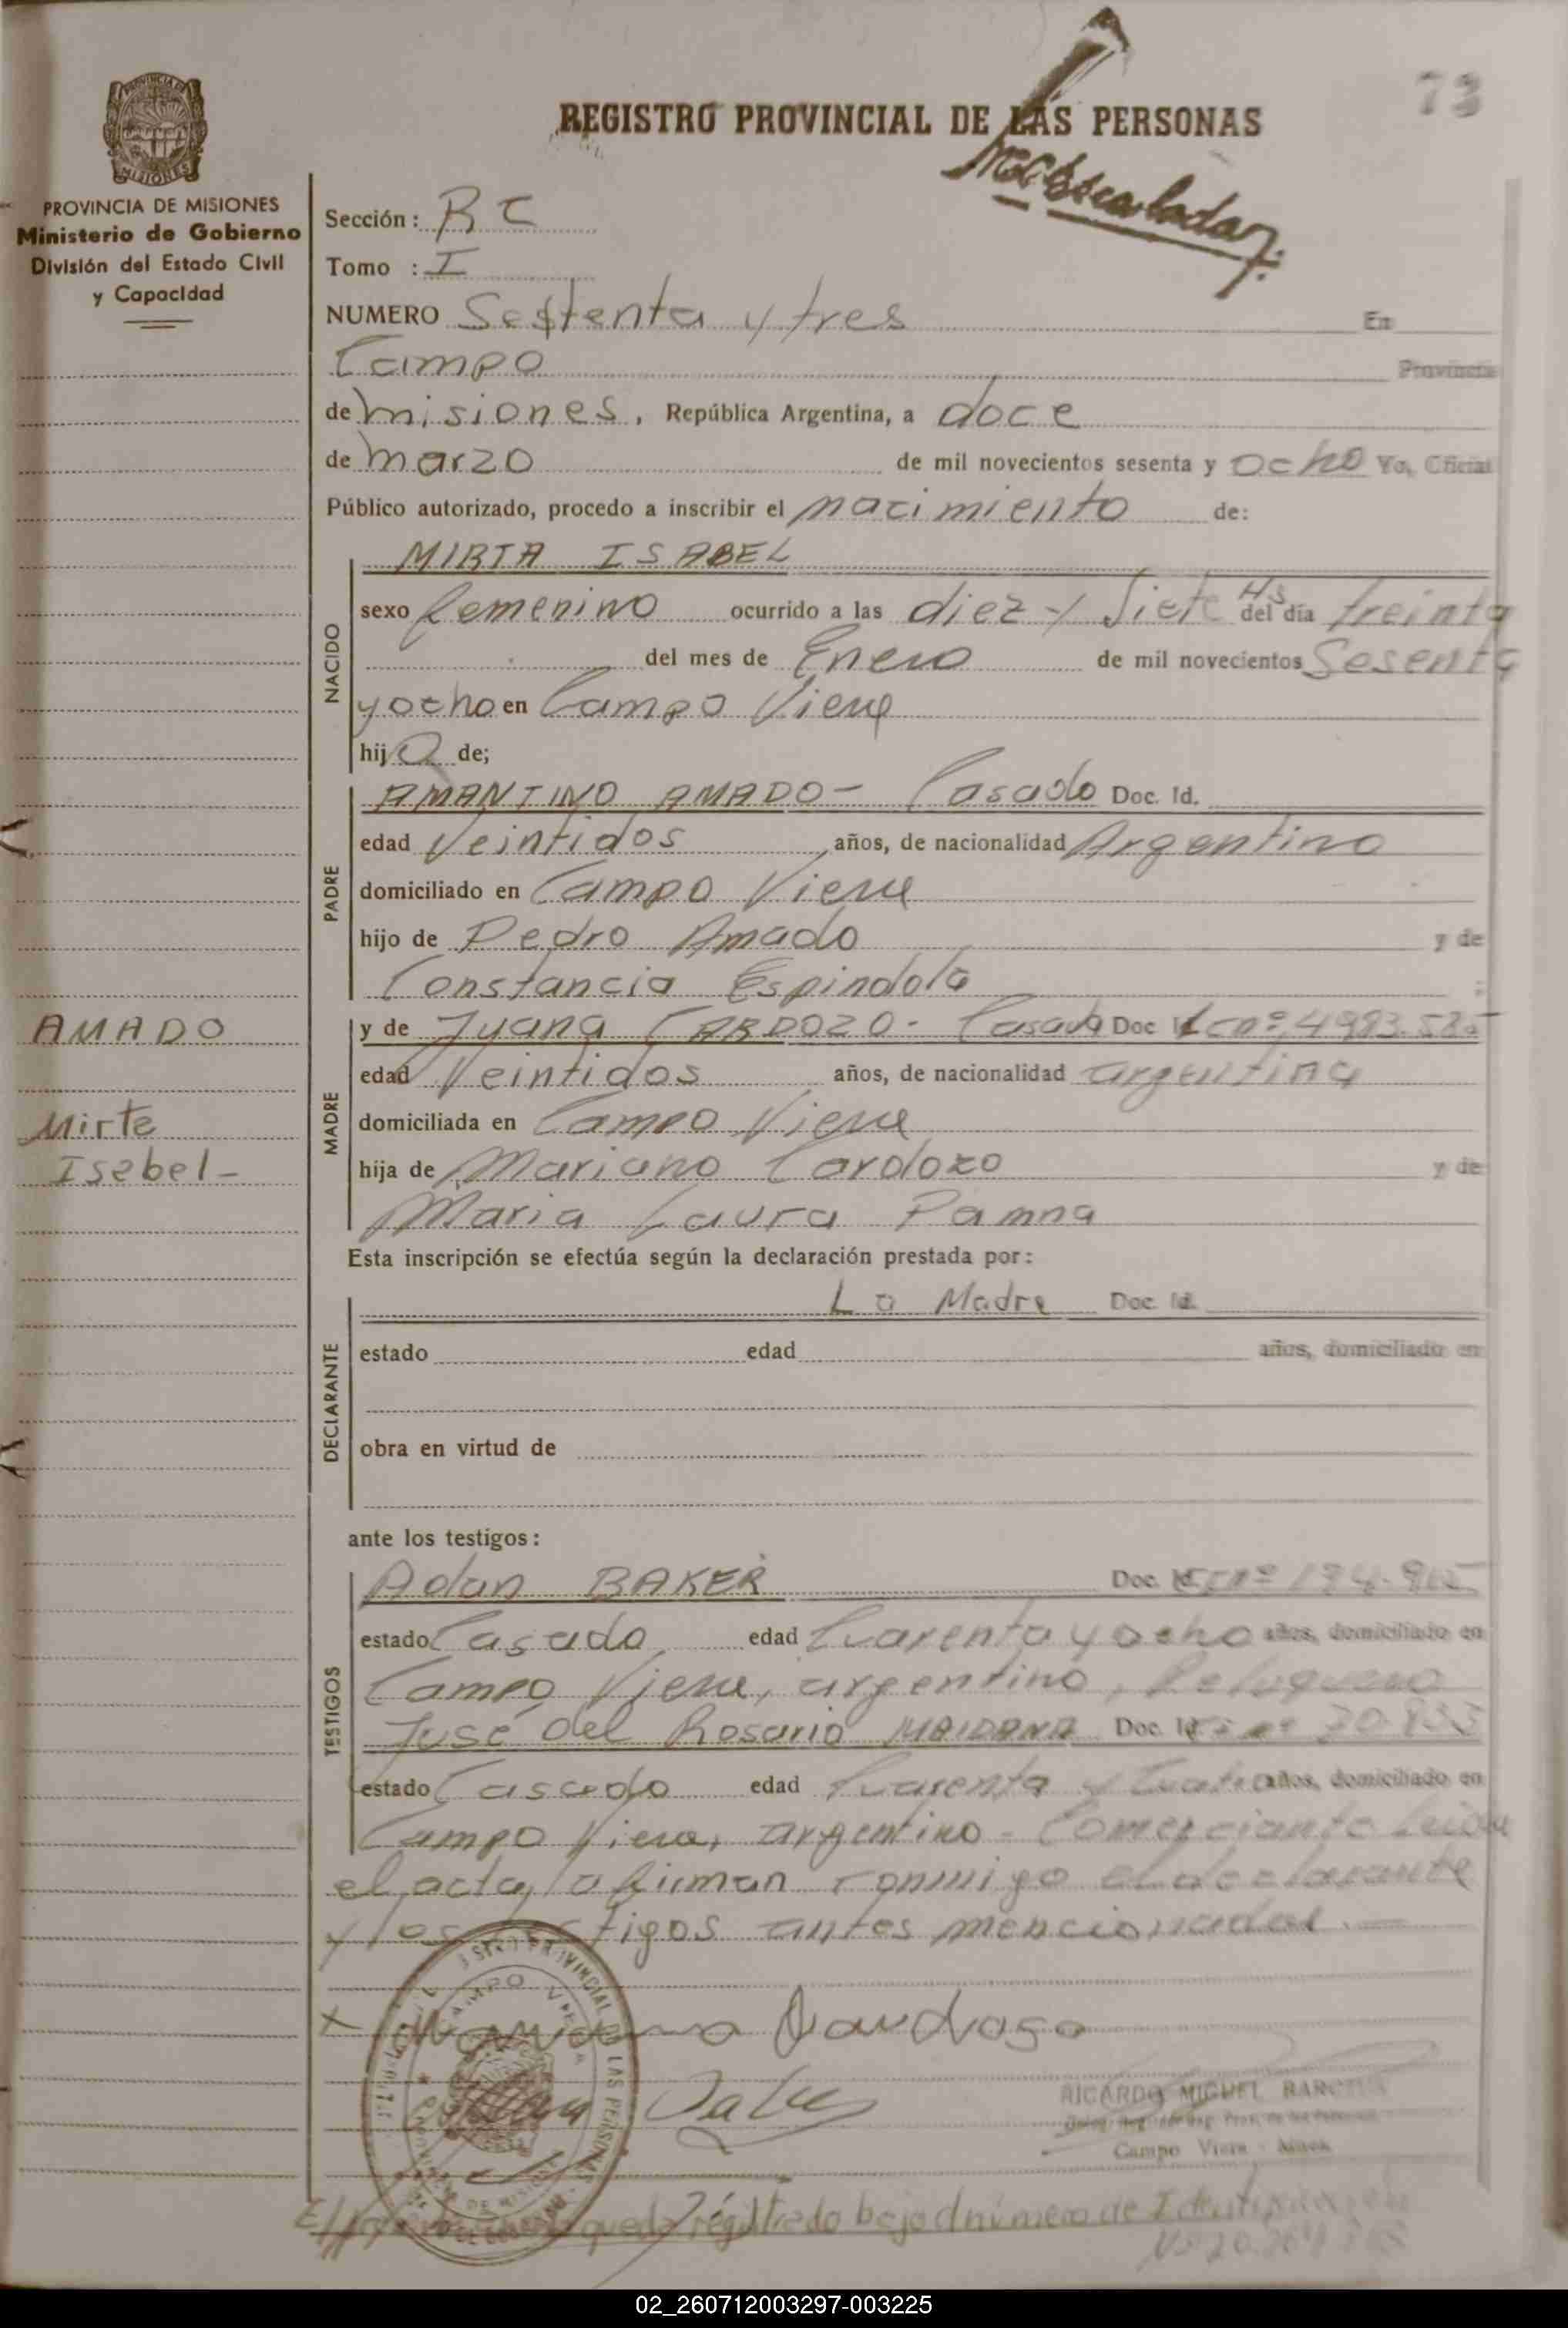 73
REGISTRO PROVINCIAL DE LAS PERSONAS
PROVINCIA DE MISIONES
Ministerio de Gobierno
División del Estado Civil
y Capacidad
Sección: RC
Tomo : I
NUMERO Sestenta y tres En
Campo Provincia
de misiones, República Argentina, a doce
de marzo de mil novecientos sesenta y ocho Yo, Oficial
Público autorizado, procedo a inscribir el nacimiento de:
MIRTA ISABEL
NACIDO
sexo femenino ocurrido a las diez y Siete Hs del día treinta
del mes de Enero de mil novecientos Sesenta
y ocho en Campo Viera
hija de;
PADRE
AMANTINO AMADO - Casado Doc. Id.
edad Veintidos años, de nacionalidad Argentino
domiciliado en Campo Viera
hijo de Pedro Amado y de
Constancia Espindola ;
AMADO
Mirta
Isabel -
MADRE
y de Juana CARDOZO - Casada Doc
edad Veintidos años, de nacionalidad argentina
domiciliada en Campo Viera
hija de Mariano Cardozo y de
Maria Laura
Esta inscripción se efectúa según la declaración prestada por:
DECLARANTE
La Madre Doc. Id.
estado edad años, domiciliado en
obra en virtud de
ante los testigos:
TESTIGOS
Adan BAKER Doc.
estado Casado edad Cuarenta y ocho años, domiciliado en
Campo Viera, argentino,
José del Rosario MAIDANA Doc.
estado Casado edad Cuarenta y Cuatro años, domiciliado en
Campo Viera, argentino - Comerciante
el acta, la firman conmigo el declarante
y los testigos antes mencionados. —
RICARDO MIGUEL
Campo Viera - Mnes.
queda registrado bajo el número de
02_260712003297-003225